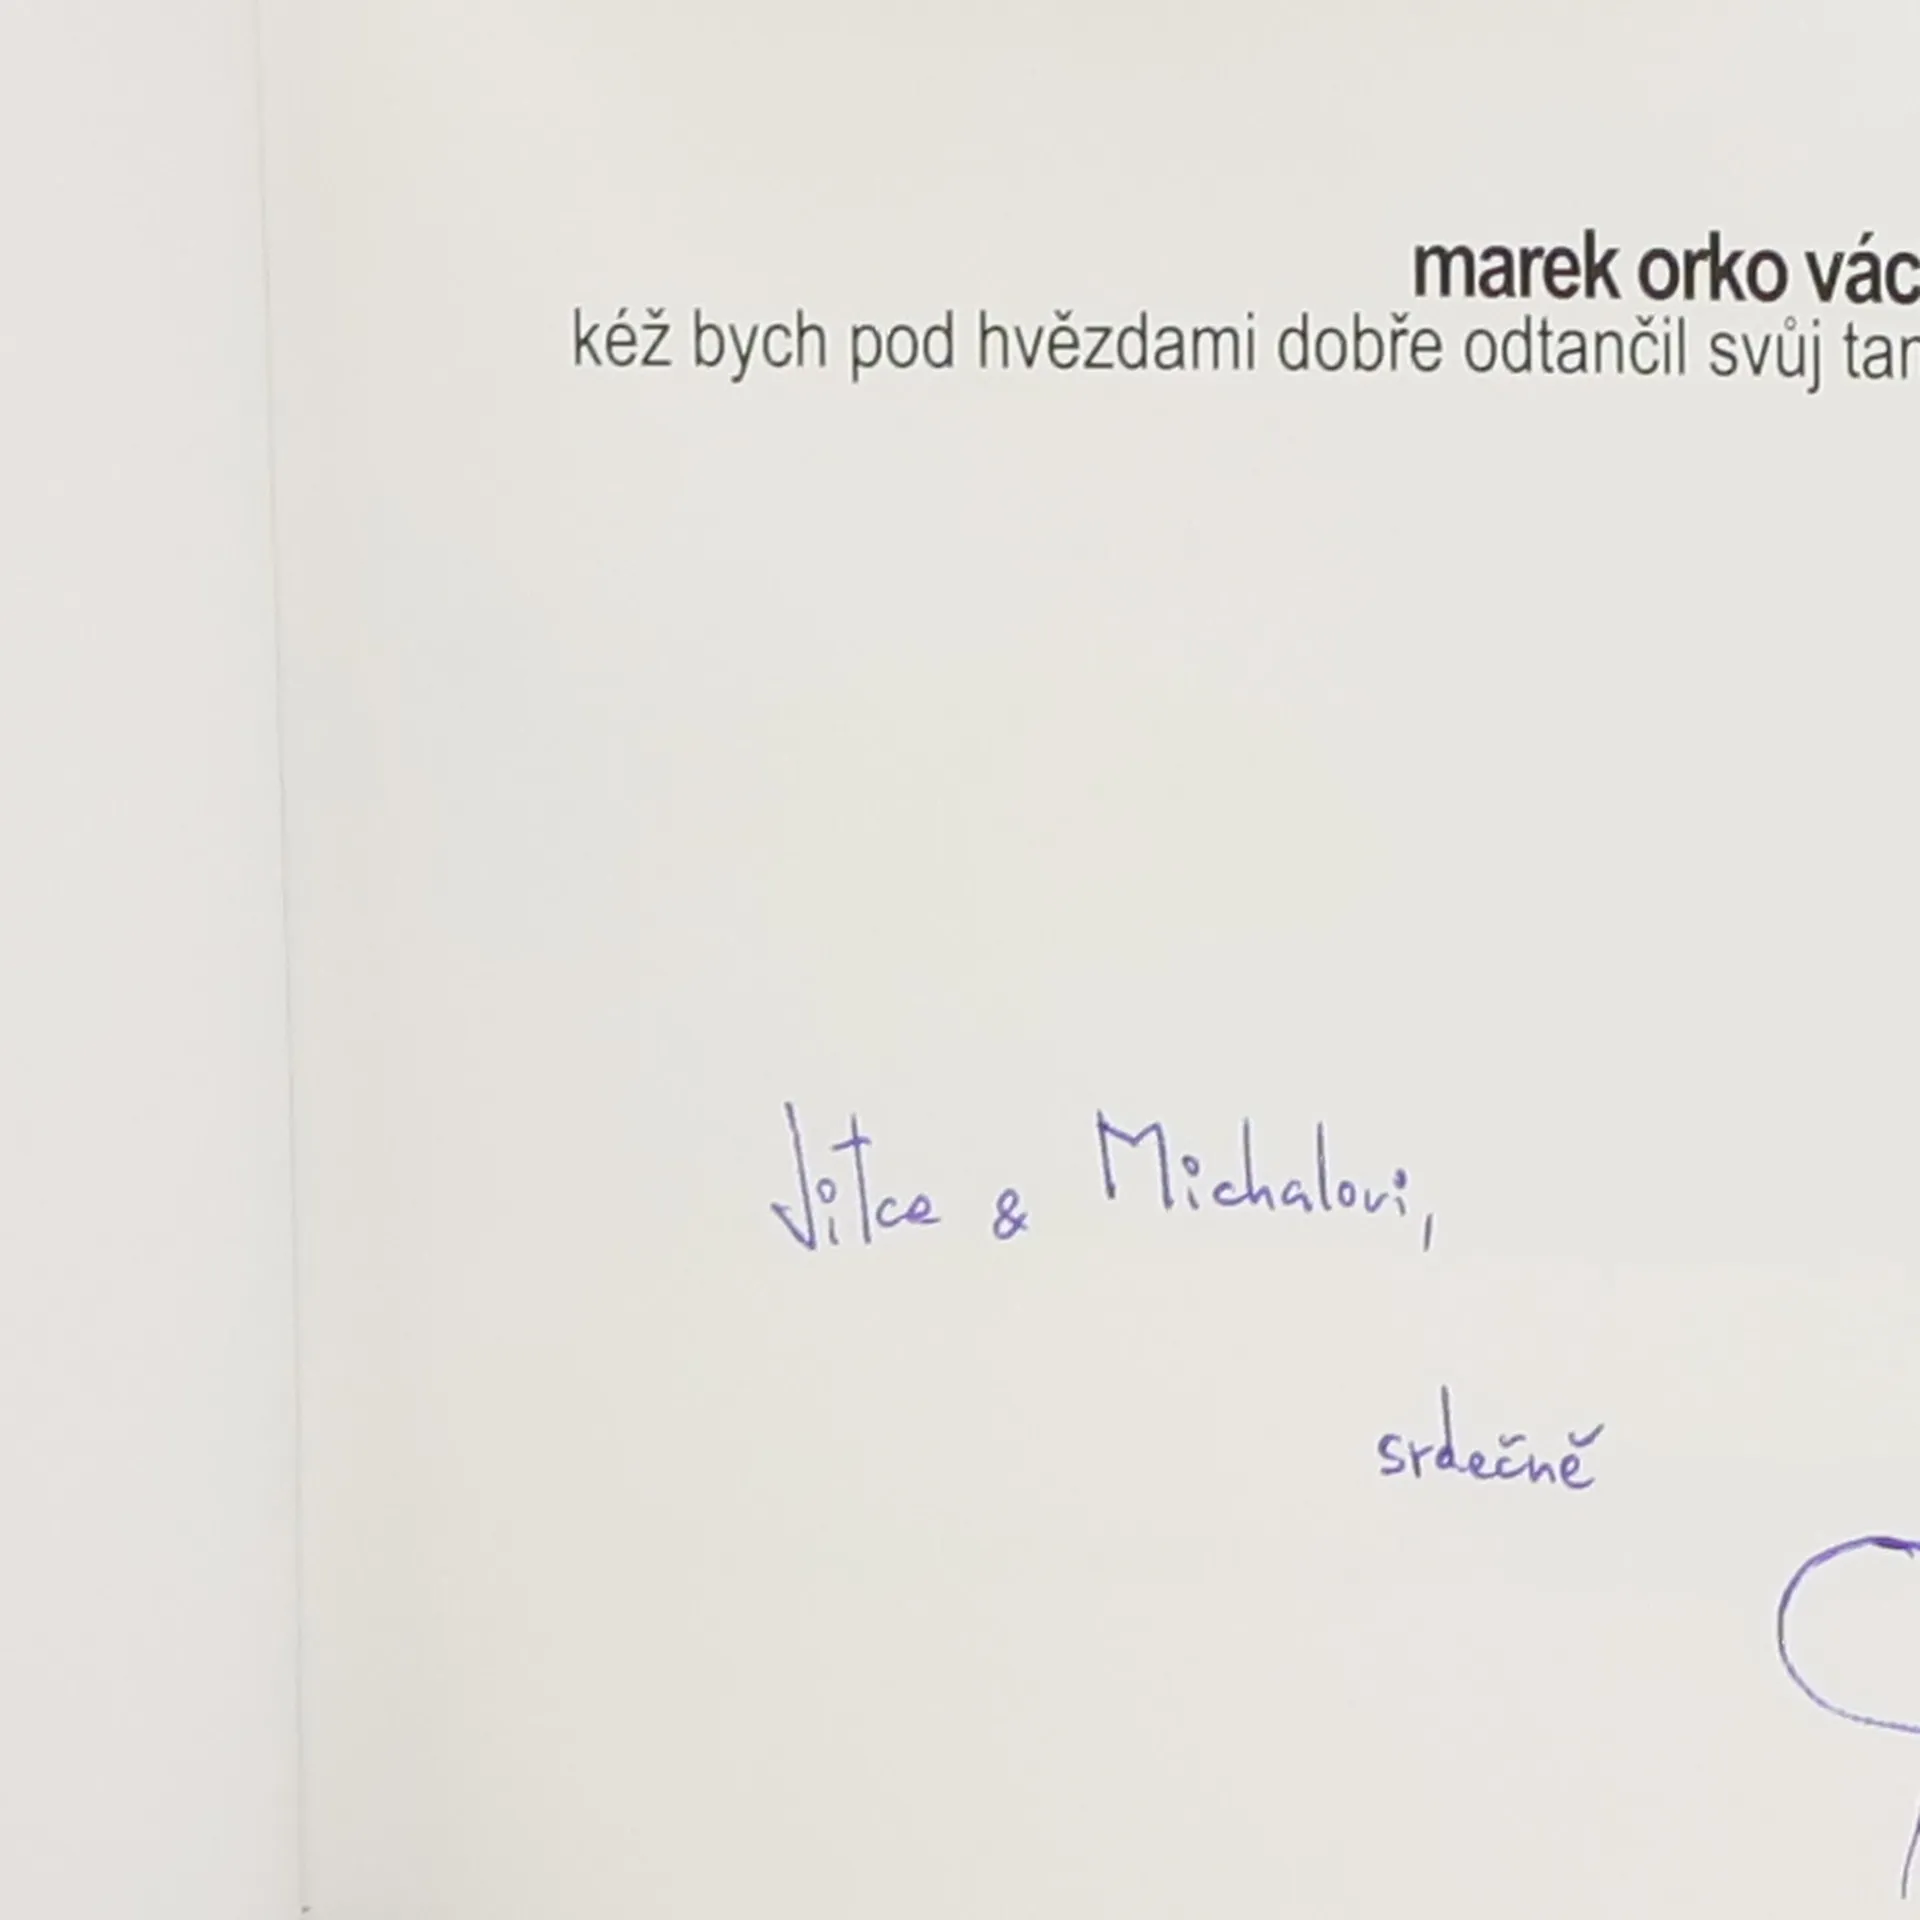 marek orko vác
kéž bych pod hvězdami dobře odtančil svůj tan
Jitce & Michalovi,
srdečně